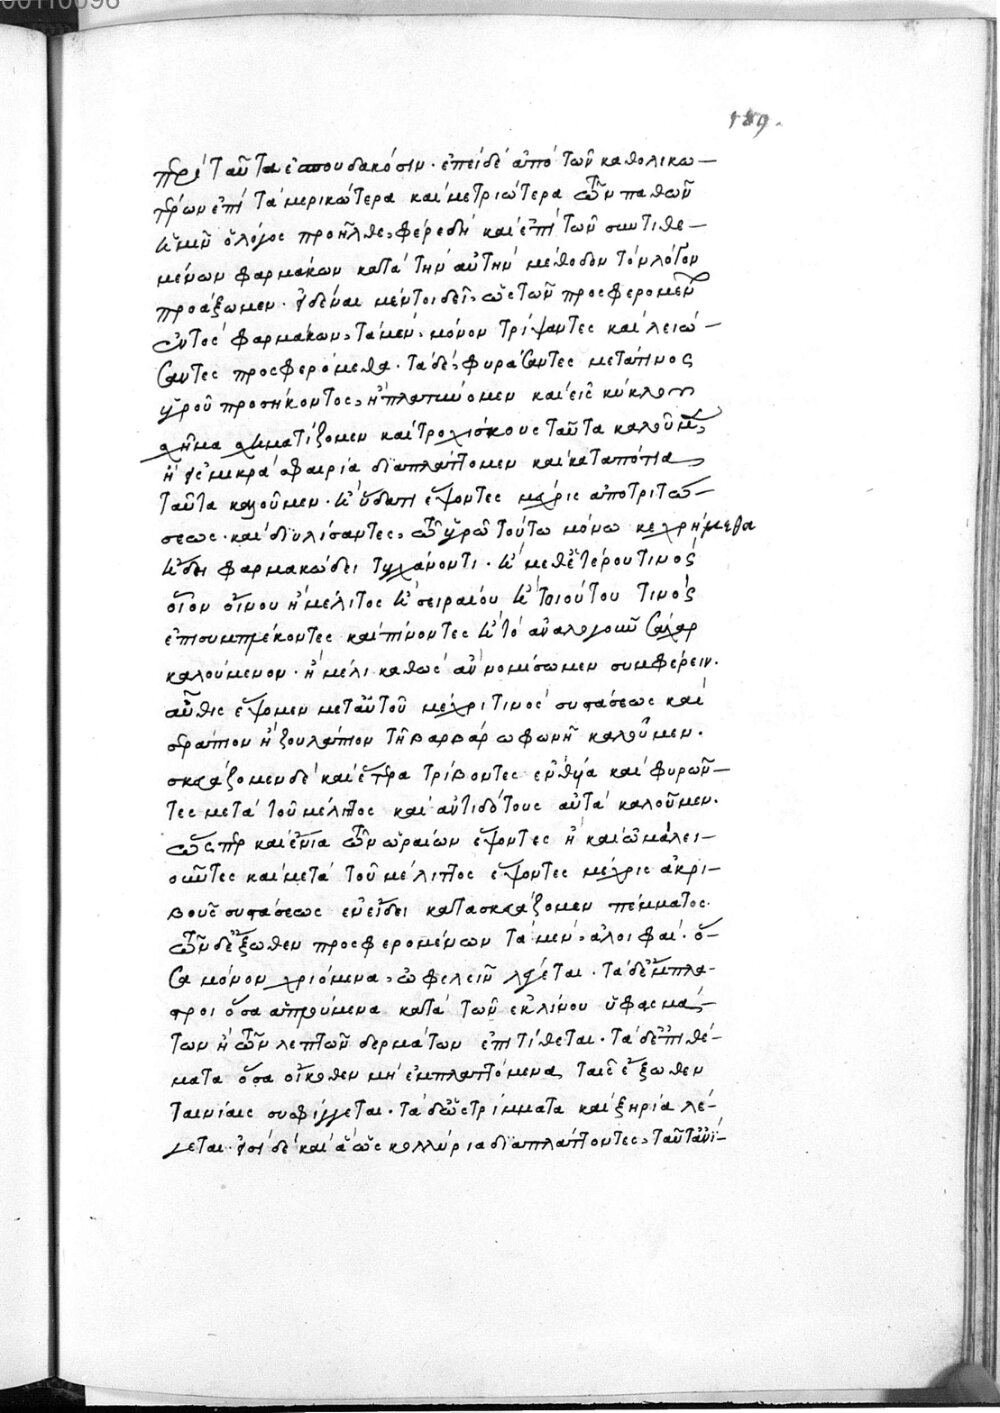 00110096
189.
περὶ ταῦτα ἐσπουδακόσιν. ἐπεὶ δὲ ἀπὸ τῶν καθολικω-
τέρων ἐπὶ τὰ μερικώτερα καὶ μετριώτερα τῶν παθῶν
ἡμῖν ὁ λόγος προῆλθε, φέρε δὴ καὶ ἐπὶ τῶν συντιθε-
μένων φαρμάκων κατὰ τὴν αὐτὴν μέθοδον τὸν λόγον
προάξωμεν. εἰδέναι μέντοι δεῖ, ὡς τῶν προσφερομένων
ἐντὸς φαρμάκων, τὰ μὲν, μόνον τρίψαντες καὶ λειώ-
σαντες προσφερόμεθα. τὰ δὲ, φυράσαντες μετά τινος
ὑγροῦ προσήκοντος, ἢ πλατύνομεν καὶ εἰς κύκλου
σχῆμα σχηματίζομεν καὶ τροχίσκους ταῦτα καλοῦμεν,
ἢ εἰς μικρὰ σφαιρία διαπλάττομεν καὶ καταπότια
ταῦτα καλοῦμεν. ἢ ὕδατι ἕψοντες μέχρις ἀποτριτώ-
σεως. καὶ διϋλίσαντες, τῷ ὑγρῷ τούτω μόνω κεχρήμεθα
ἤδει φαρμακώδει τυγχάνοντι. ἢ μεθ' ἑτέρου τινὸς
οἷον οἴνου ἢ μέλιτος ἢ σειραίου ἢ τοιούτου τινὸς
ἐπισυμπλέκοντες καὶ πίνοντες ἢ τὸ ἀναλογοῦν σάχαρ
καλούμενον. ἢ μέλι καθὼς ἂν νομίσωμεν συμφέρειν.
αὖθις ἕψομεν μετ' αὐτοῦ μέχρι τινὸς συστάσεως καὶ
δράπιον ἢ ζουλάπιον τῆ βαρβάρω φωνῆ καλοῦμεν.
σκευάζομεν δὲ καὶ ἕτερα τρίβοντες ἐνθύα καὶ φυρῶν-
τες μετὰ τοῦ μέλιτος καὶ ἀντιδότους αὐτὰ καλοῦμεν.
ὥσπερ καὶ ἔνια τῶν ὡραίων ἕψοντες ἢ καὶ ὠμὰ λει-
οῦντες καὶ μετὰ τοῦ μέλιτος ἕψοντες μέχρις ἀκρι-
βοῦς συστάσεως ἐν εἴδει κατασκευάζομεν πέμματος.
τῶν δ' ἔξωθεν προσφερομένων τὰ μὲν, ἀλοιφαὶ. ὅ-
σα μόνον χριόμενα, ὠφελεῖν λέγεται. τὰ δ' ἔμπλα-
στροι ὅσα ἁπτόμενα κατὰ τῶν ἐκ λίνου ὑφασμά-
των ἢ τῶν λεπτῶν δερμάτων ἐπιτίθεται. τὰ δ' ἐπιθέ-
ματα ὅσα οἴκοθεν μὴ ἐμπλαττόμενα ταῖς ἔξωθεν
ταινίαις συσφίγγεται. τὰ δ' ὡς τρίμματα καὶ ξηρία λέ-
γεται. εἰσὶ δὲ καὶ ἃ ὡς κολλύρια διαπλάττοντες, ταῦτ' ἀνί-